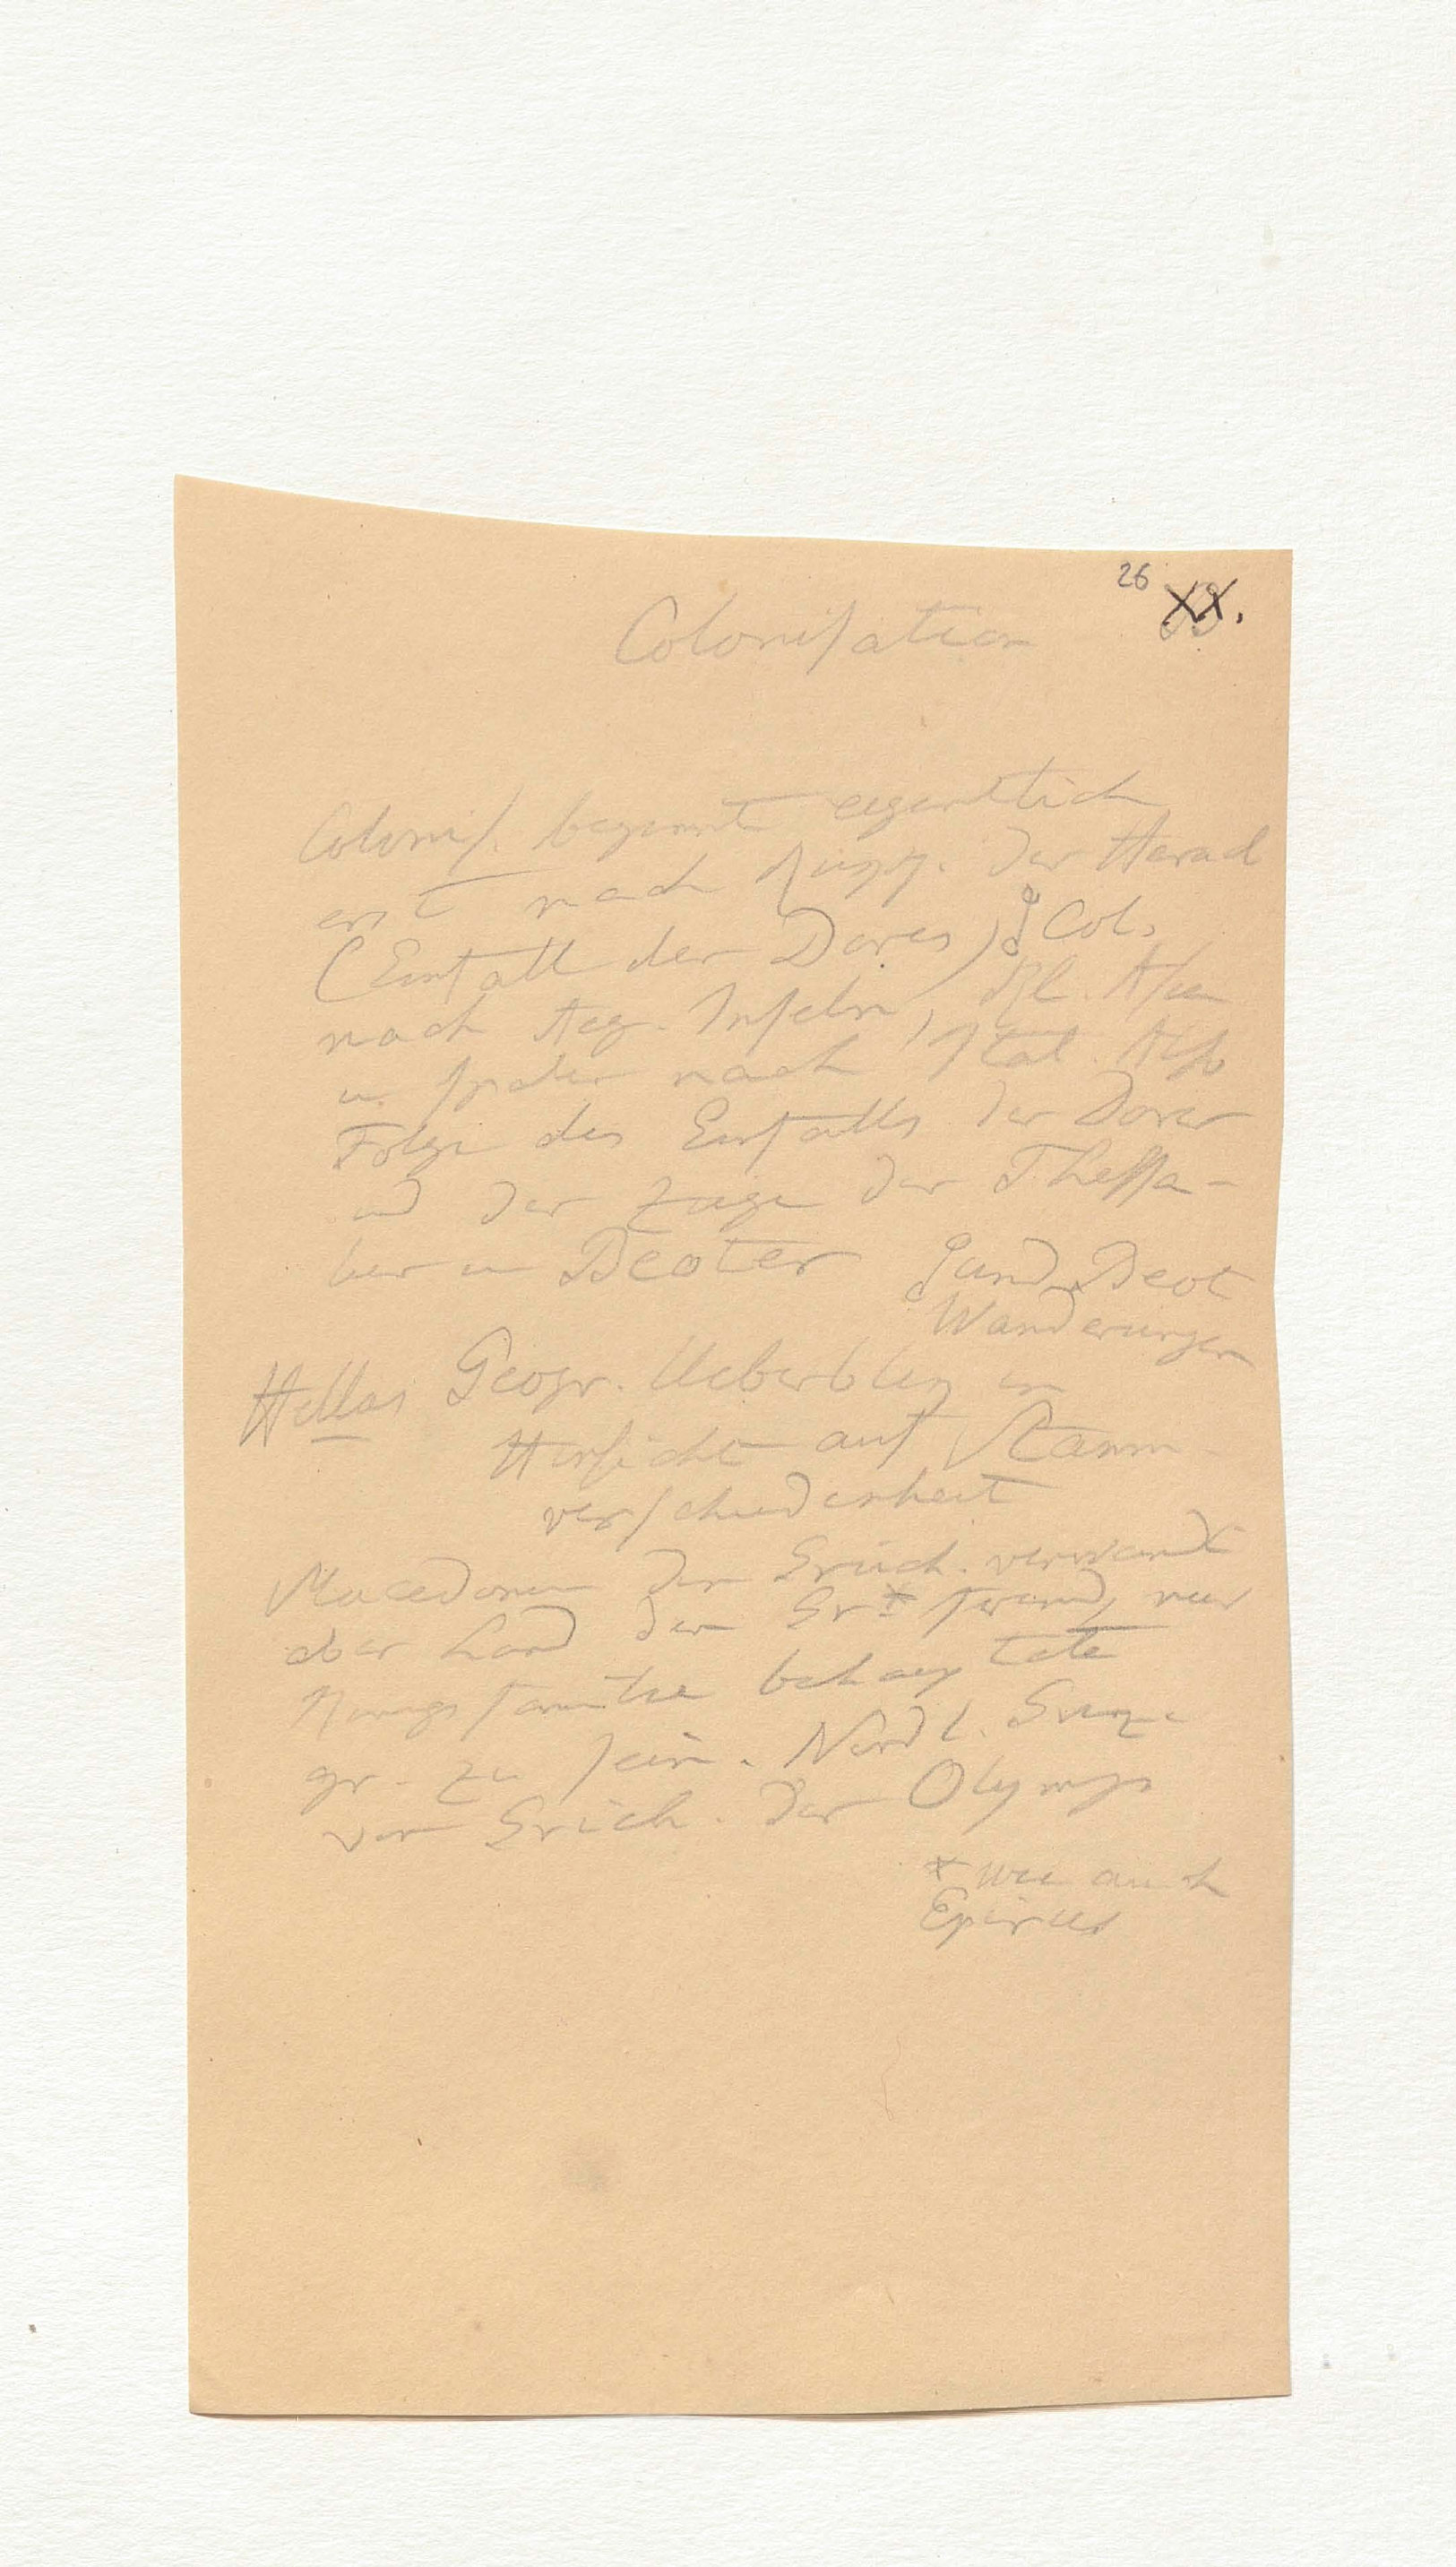 26
XX.
Coloniſation
Coloniſ. beginnt eigentlich
erst nach Rückk. der Heracl
(Einfall der Dores) Col.
nach Aeg. Inſeln, Kl. Aſien
u. ſpäter nach Ital. Alſo
Folge des Einfalls der Dorer
und der Züge der Theſſa-
lier u Beoter und Beot
Wanderungen
Hellas Geogr. Ueberblick in
Hinſicht auf Stamm
verſchiedenheit
Macedonien den Griech. verwandt
aber Land den Gr x fremd, nur
Königsfamilie behauptete
gr. zu ſein. Nördl. Grenze
von Griech. der Olymp
x wie auch
Epirus